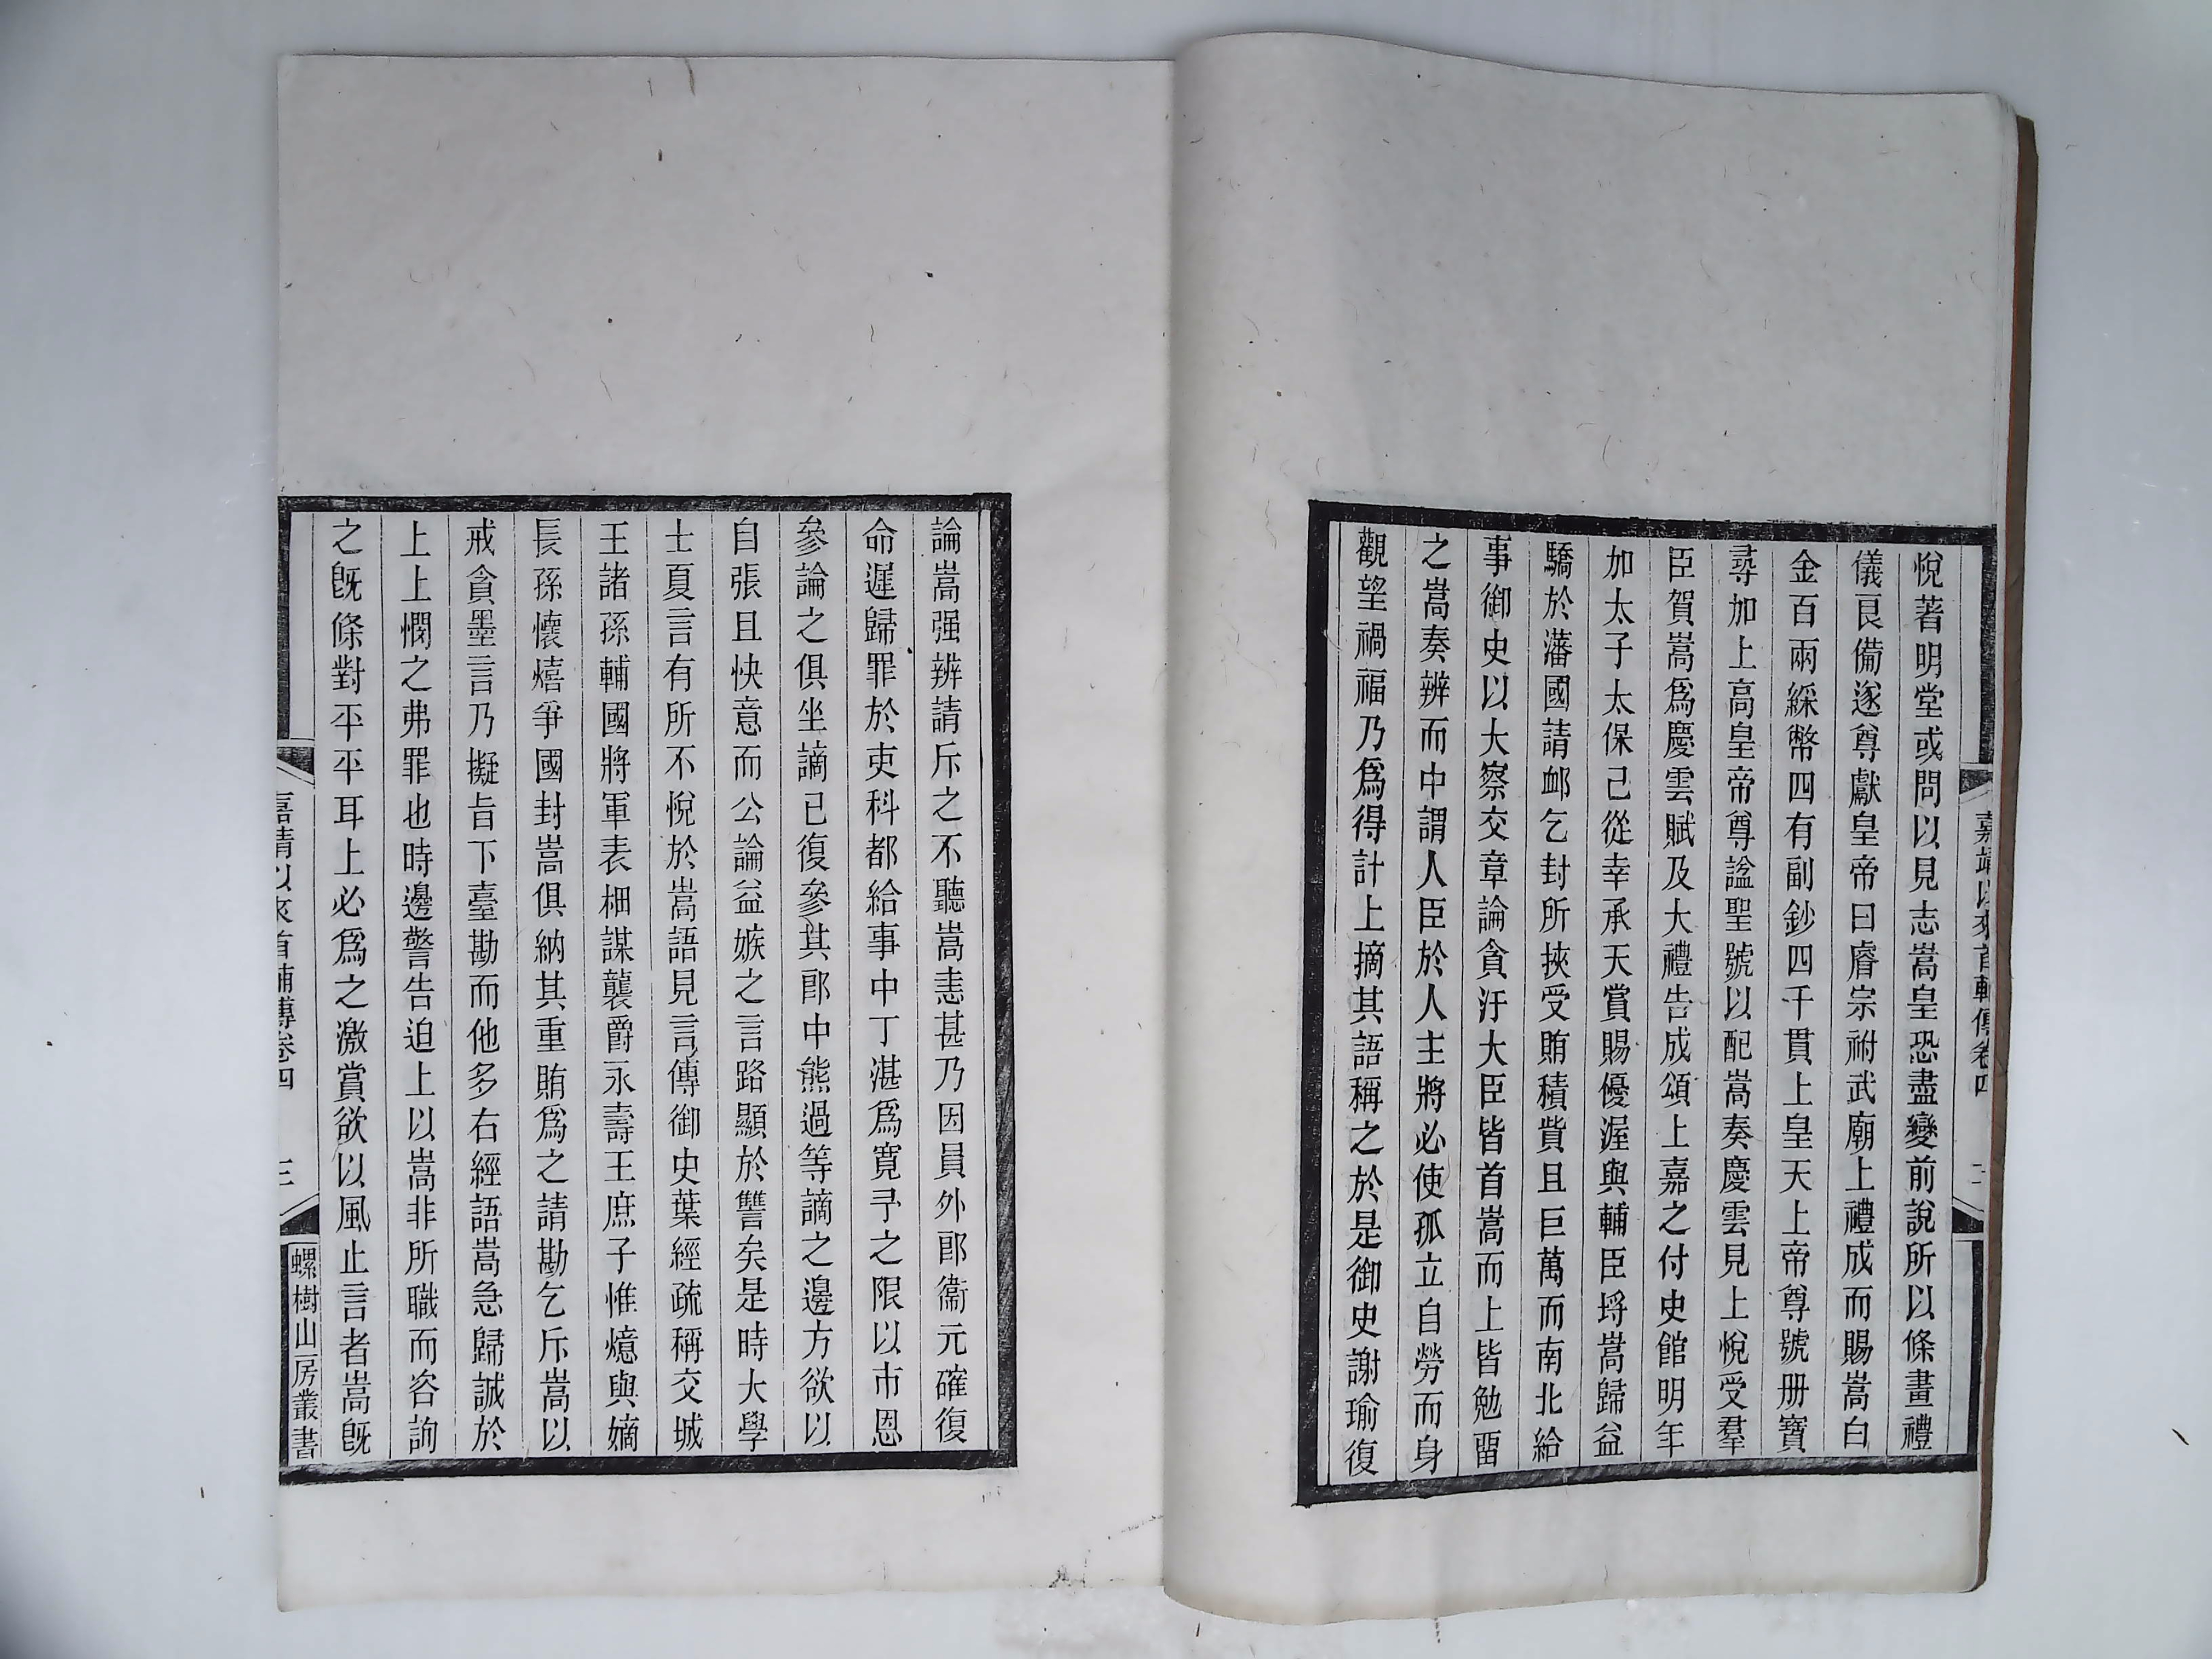 嘉靖以來首輔傳卷四 二
悅著明堂或問以見志嵩皇恐盡變前說所以條畫禮
儀良備遂尊獻皇帝曰睿宗祔武廟上禮成而賜嵩白
金百兩綵幣四有副鈔四千貫上皇天上帝尊號册寶
尋加上高皇帝尊謚聖號以配嵩奏慶雲見上悅受羣
臣賀嵩爲慶雲賦及大禮告成頌上嘉之付史館明年
加太子太保已從幸承天賞賜優渥與輔臣埒嵩歸益
驕於藩國請卹乞封所挾受賄積貲且巨萬而南北給
事御史以大察交章論貪汙大臣皆首嵩而上皆勉畱
之嵩奏辨而中謂人臣於人主將必使孤立自勞而身
觀望禍福乃爲得計上摘其語稱之於是御史謝瑜復
論嵩强辨請斥之不聽嵩恚甚乃因員外郎衞元確復
命遲歸罪於吏科都給事中丁湛爲寬予之限以市恩
參論之俱坐謫已復參其郎中熊過等謫之邊方欲以
自張且快意而公論益嫉之言路顯於讐矣是時大學
士夏言有所不悅於嵩語見言傳御史葉經疏稱交城
王諸孫輔國將軍表柵謀襲爵永壽王庶子惟燱與嫡
長孫懷熺爭國封嵩俱納其重賄爲之請勘乞斥嵩以
戒貪墨言乃擬旨下臺勘而他多右經語嵩急歸誠於
上上憫之弗罪也時邊警告迫上以嵩非所職而咨詢
之旣條對平平耳上必爲之激賞欲以風止言者嵩旣
嘉靖以來首輔傳卷四 三
螺樹山房叢書